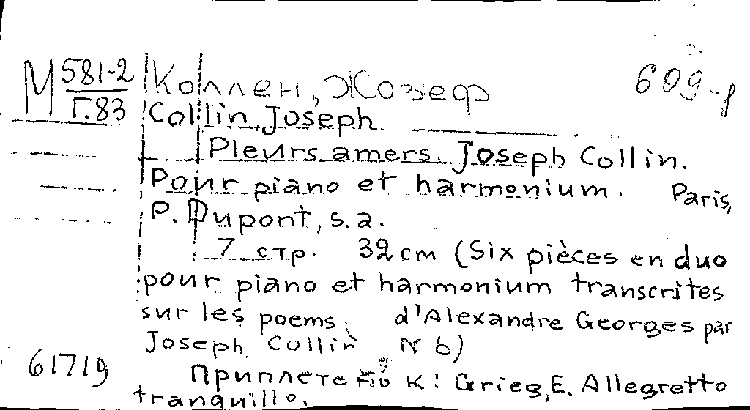 М 581-2 / Г.83
Коллен, Жозеф
609-1
Collin, Joseph.
Pleurs amers. Joseph Collin.
Pour piano et harmonium. Paris,
P. Dupont, s.a.
7 стр. 32 cm (Six pièces en duo
pour piano et harmonium transcrites
sur les poems d'Alexandre Georges par
Joseph Collin N 6)
61719
Приплетено к: Grieg, E. Allegretto
tranquillo.